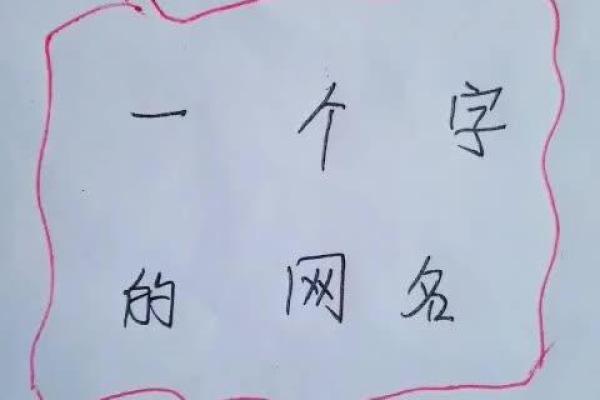 一个字
的网名